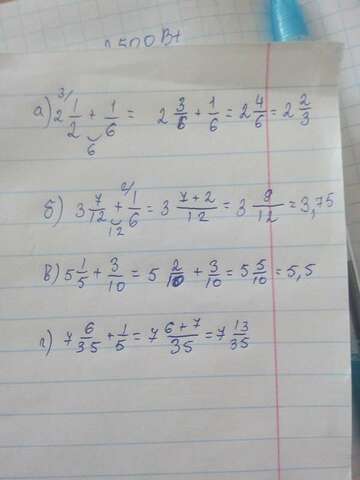 1500 Вт
а) 2 1/2 ³⁾ + 1/6 = 2 3/6 + 1/6 = 2 4/6 = 2 2/3
6
б) 3 7/12 + ²⁾ 1/6 = 3 (7+2)/12 = 3 9/12 = 3,75
12
в) 5 1/5 + 3/10 = 5 2/10 + 3/10 = 5 5/10 = 5,5
г) 7 6/35 + 1/5 = 7 (6+7)/35 = 7 13/35